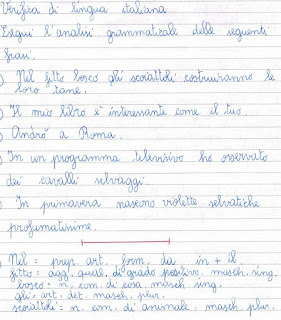 Verifica di lingua italiana
Esegui l'analisi grammaticale delle seguenti
frasi.
) Nel fitto bosco gli scoiattoli costruiranno le
loro tane.
) Il mio libro è interessante come il tuo.
) Andrò a Roma.
) In un programma televisivo ho osservato
dei cavalli selvaggi.
) In primavera nascono violette selvatiche
profumatissime.
Nel = prep. art. form. da in + il.
fitto = agg. qual. di grado positivo, masch. sing.
bosco = n. com. di cosa masch. sing.
gli = art. det. masch. plur.
scoiattoli = n. com. di animale, masch. plur.